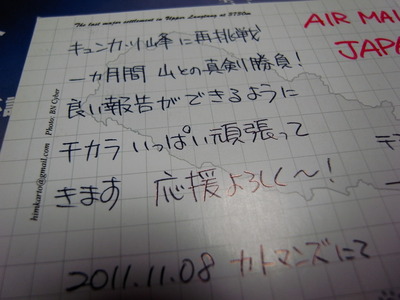 The last major settlement in Upper Langtang at 3730m
AIR MAI
JAPA
キュンカリ峰に再挑戦
一カ月間 山との真剣勝負!
良い報告ができるように
チカラいっぱい頑張って
きます 応援よろしく〜!
2011.11.08 カトマンズにて
himkarto@gmail.com Photo: BN Cyber